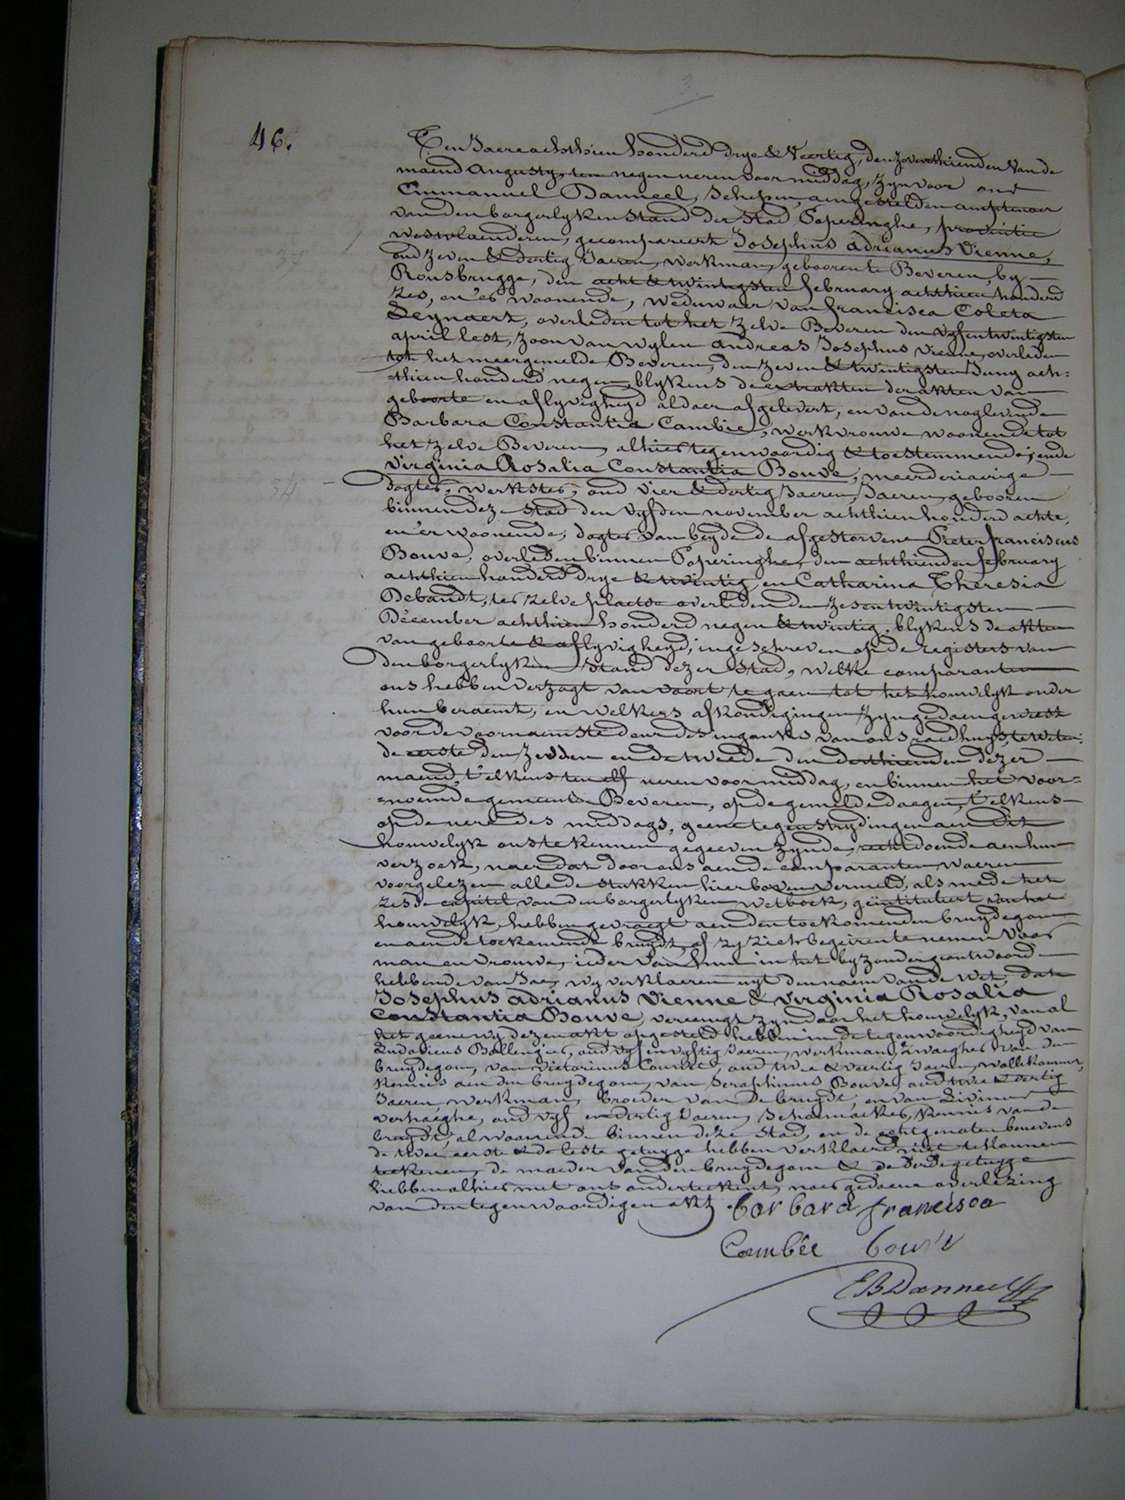 3
46.
Ten Jaere achthien honderd drye & Veertig, den zeventhienden van de
maend Augusty, ten negen uren voor middag, zyn voor ons
Emmanuel Danneel, Schepen, aengestelden amptenaer
van den borgerlyken stand der Stad Poperinghe, provintie
Westvlaenderen, gecompareert Josephus Adrianus Vienne,
37
oud zeven & dertig Jaeren, werkman, gebooren te Beveren, by
Rousbrugge, den acht & twintigsten february achthien honderd
zes, en er woonende, weduwaer van francisca Coleta
overleden tot het zelve Beveren den vyfentwintigsten
april lest, zoon van wylen Andreas Josephus Vienne, overleden
tot het meergemelde Beveren, den zeven & twintigsten Juny ach-
thien honderd negen, blykens de extrakten der akten van
geboorte en aflyvigheyd aldaer afgelevert, en van de naglevende
Barbara Constantia Cambie, werkvrouwe woonende tot
het zelve Beveren, alhier tegenwoordig & toestemmende; ende
Virginia Rosalia Constantia Bouve, meerderjaerige
34
dogter, werkster, oud vier & dertig Jaeren, Jaeren, gebooren
binnen deze Stad den vyfden november achthien honderd achte,
en er woonende, dogter van beyde de afgestorvene Pieter franciscus
Bouve, overleden binnen Poperinghe, den achthienden february
achthien honderd drye & twintig, en Catharina Theresia
Debandt, ter zelve plaetse overleden den zesentwintigsten
December achthien honderd negen & twintig, blykens de akten
van geboorte & aflyvigheyd, ingeschreven op de registers van
den borgerlyken Stand dezer Stad, welke comparanten
ons hebben verzogt van voort te gaen tot het houwelyk onder
hun beraemt, en welkers afkondigingen zyn gedaen geweest
voor de voornaemste deur des ingankx van ons raedhuys, te weten:
de eerste den zesden en de tweede den derthienden dezer
maend, telkens ten elf uren voor middag, en binnen het voor-
noemde gemeente Beveren, op de gemelde daegen, telkens
op de uere des middags, geene tegenstrydingen aen dit
houwelyk ons te kennen gegeven zynde, recht doende aen hun
verzoek, naer dat door ons aen de comparanten waeren
voorgelezen alle de stukken hier boven vermeld, als mede het
zesde capitel van den borgerlyken wetboek, geintituleert van het
houwelyk, hebben gevraegt aen den toekomenden bruydegom
en aen de toekomende bruydt, of zy zich begeirente nemen voor
man en vrouwe, ieder van hun in het byzonder geantwoord
hebbende van Jae, wy verklaeren uyt den naem van de Wet, dat
Josephus Adrianus Vienne & Virginia Rosalia
Constantia Bouve, vereenigt zyn door het houwelyk, van al
het geene wy dezen akt opgesteld hebben in de tegenwoordigheyd van
Ludovicus oud vyf en vyftig Jaeren, werkman, zwaegher van den
bruydegom, van Victorinus oud twee & veertig Jaeren,
kennis aen den bruydegom, van Seraphinus Bouve, oud twee & dertig
Jaeren, werkman, broeder van de bruydt, en van Livinus
Verhaeghe, oud vyf en dertig Jaeren, Schoenmaeker, kennis van de
bruydt, al woonende binnen deze Stad, en de echtgenoten benevens
de twee eerste & de leste getuyge hebben verklaerd niet te konnen
teekenen, de moeder van den bruydegom & de derde getuyge
hebben alhier met ons onderteekent, naer gedaene overlezing
van den tegenwoordigen akt. barbara francisca
Cambie bouve
EBDanneel